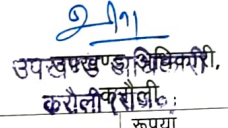 उपखण्ड अधिकारी,
करौली
रूपया